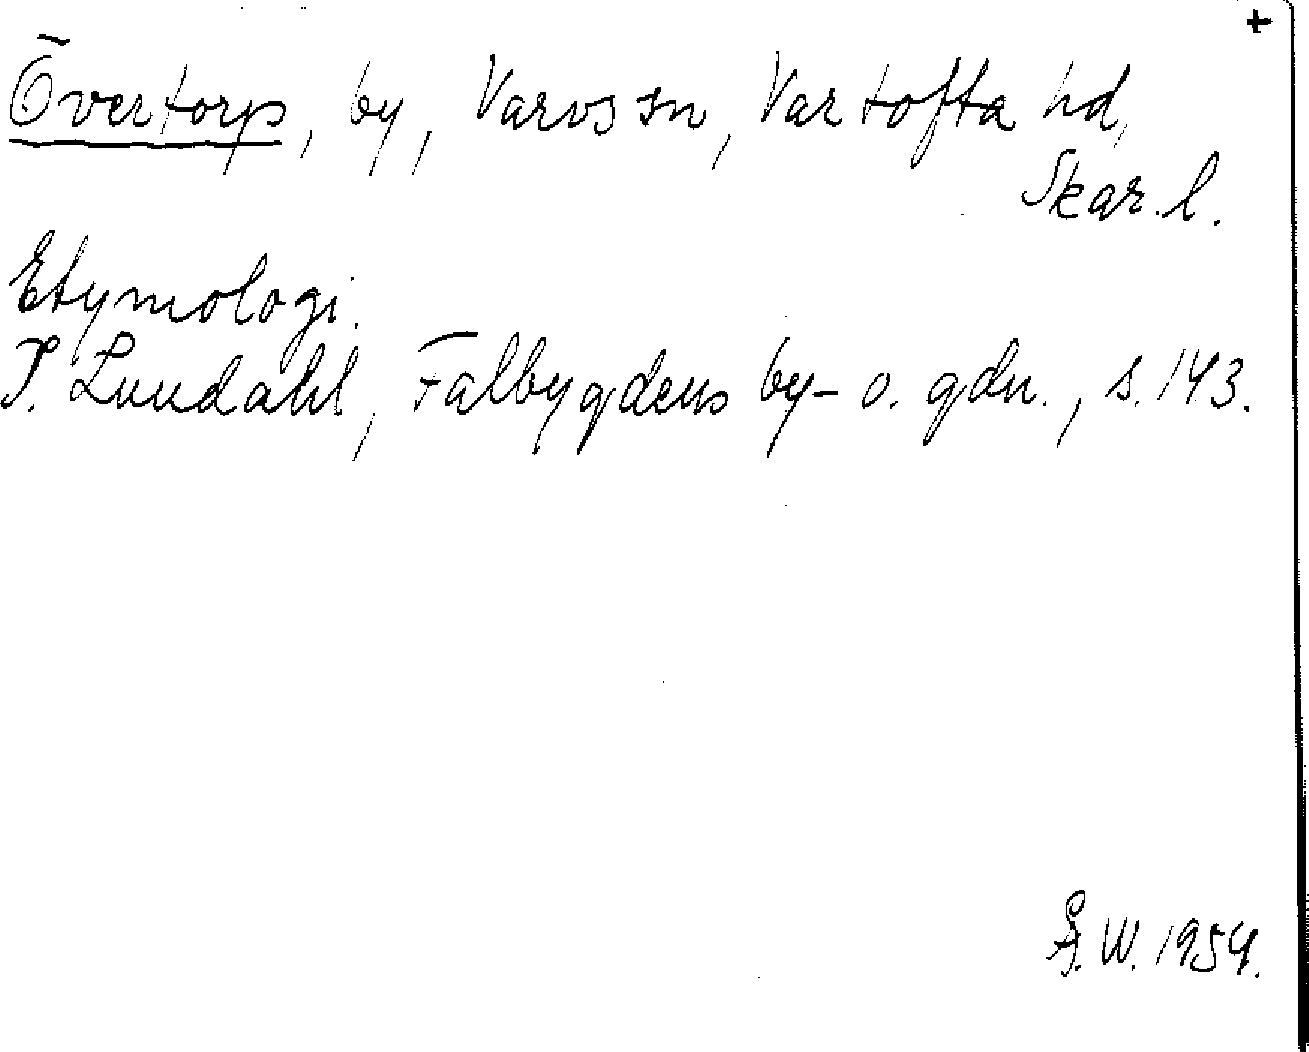 +
Övertorp, by, Varvs sn, Vartofta hd,
Skar. l.
Etymologi.
I. Lundahl, Falbygdens by- o. gdn., s. 143.
Å. W. 1954.